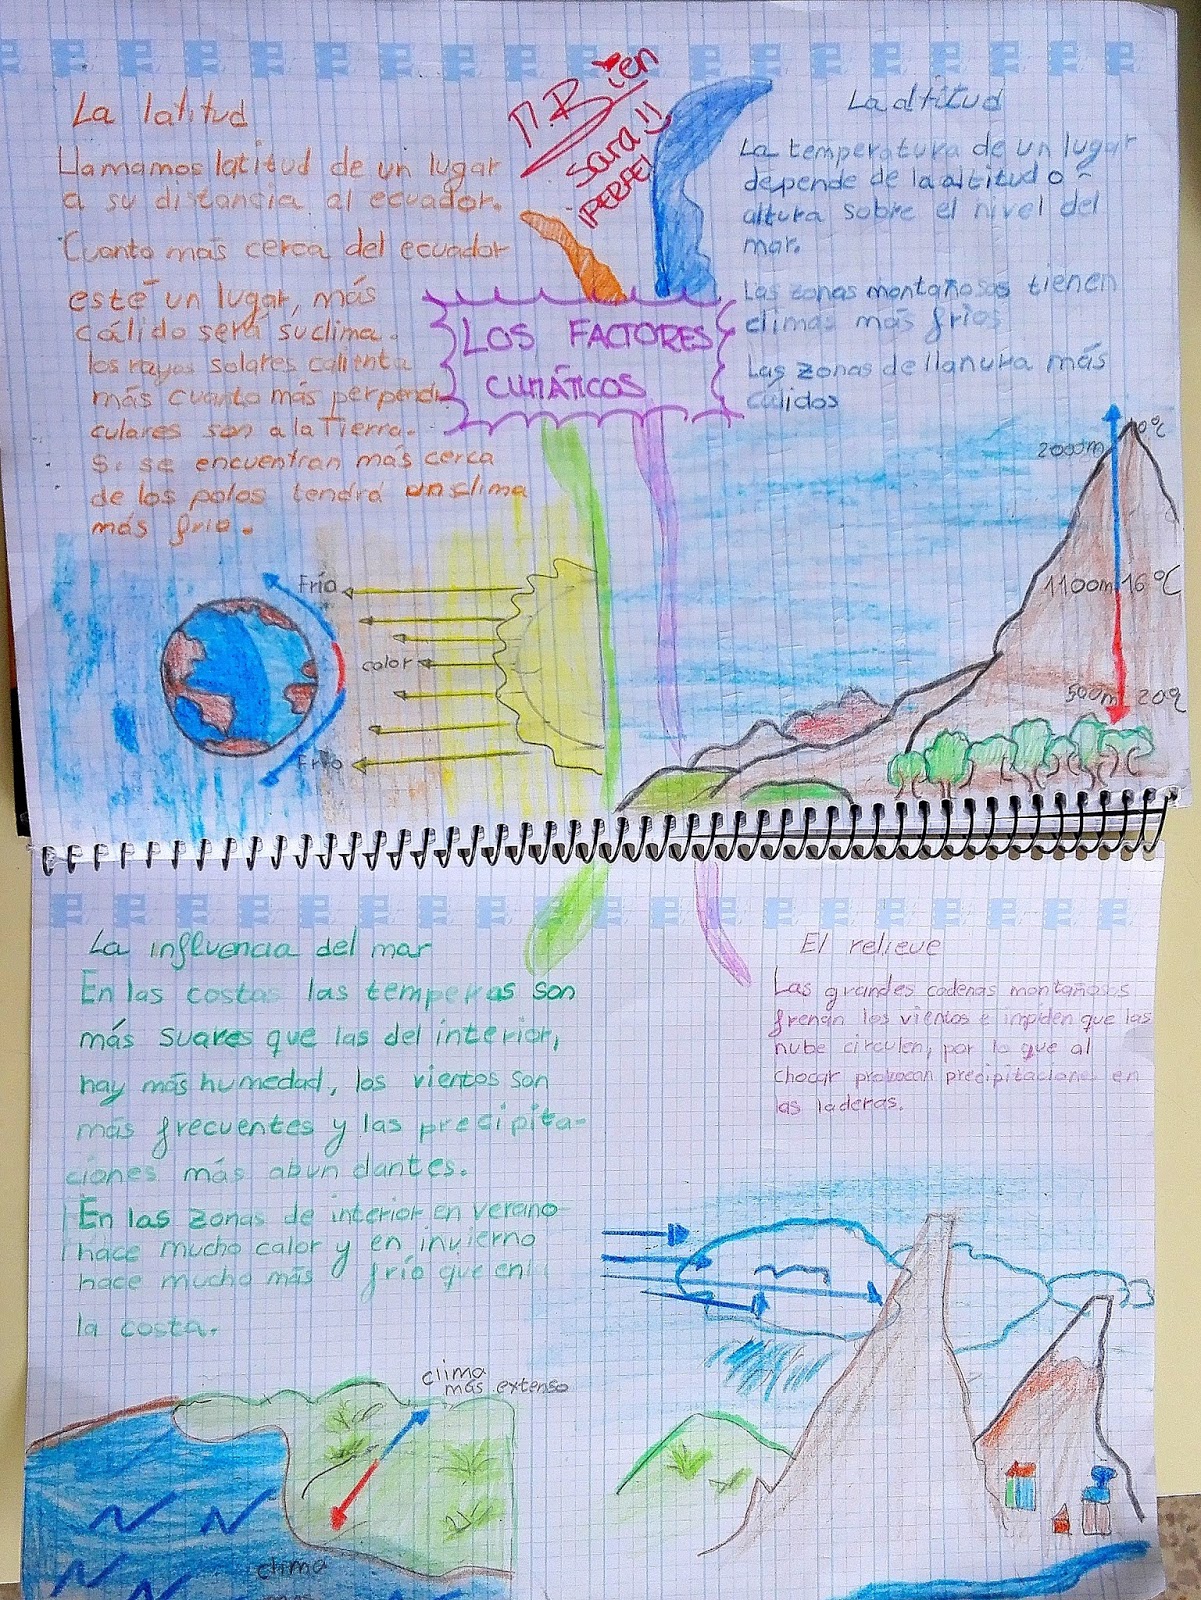 La latitud
Llamamos latitud de un lugar
a su distancia al ecuador.
Cuanto más cerca del ecuador
esté un lugar, más
cálido será su clima.
los rayos solares calienta
más cuanto más perpendi
culares son a la Tierra.
Si se encuentran más cerca
de los polos tendrá un clima
más frio.
Frío
calor
Frío
M. Bien
Sara !!
¡PERFE!
LOS FACTORES
CLIMÁTICOS
La altitud
La temperatura de un lugar
depende de la altitud o
altura sobre el nivel del
mar.
Las zonas montañosas tienen
climas más fríos
Las zonas de llanura más
cálidos
2000m 10ºC
1100m 16ºC
500m 20º
La influencia del mar
En las costas las temperas son
más suares que las del interior,
hay más humedad, los vientos son
más frecuentes y las precipita-
ciones más abundantes.
En las zonas de interior en verano
hace mucho calor y en invierno
hace mucho más frío que en
la costa.
clima
más extenso
clima
mas
El relieve
Las grandes cadenas montañosos
frenan los vientos e impiden que las
nube circulen, por lo que al
chocar provocan precipitaciones en
las laderas.